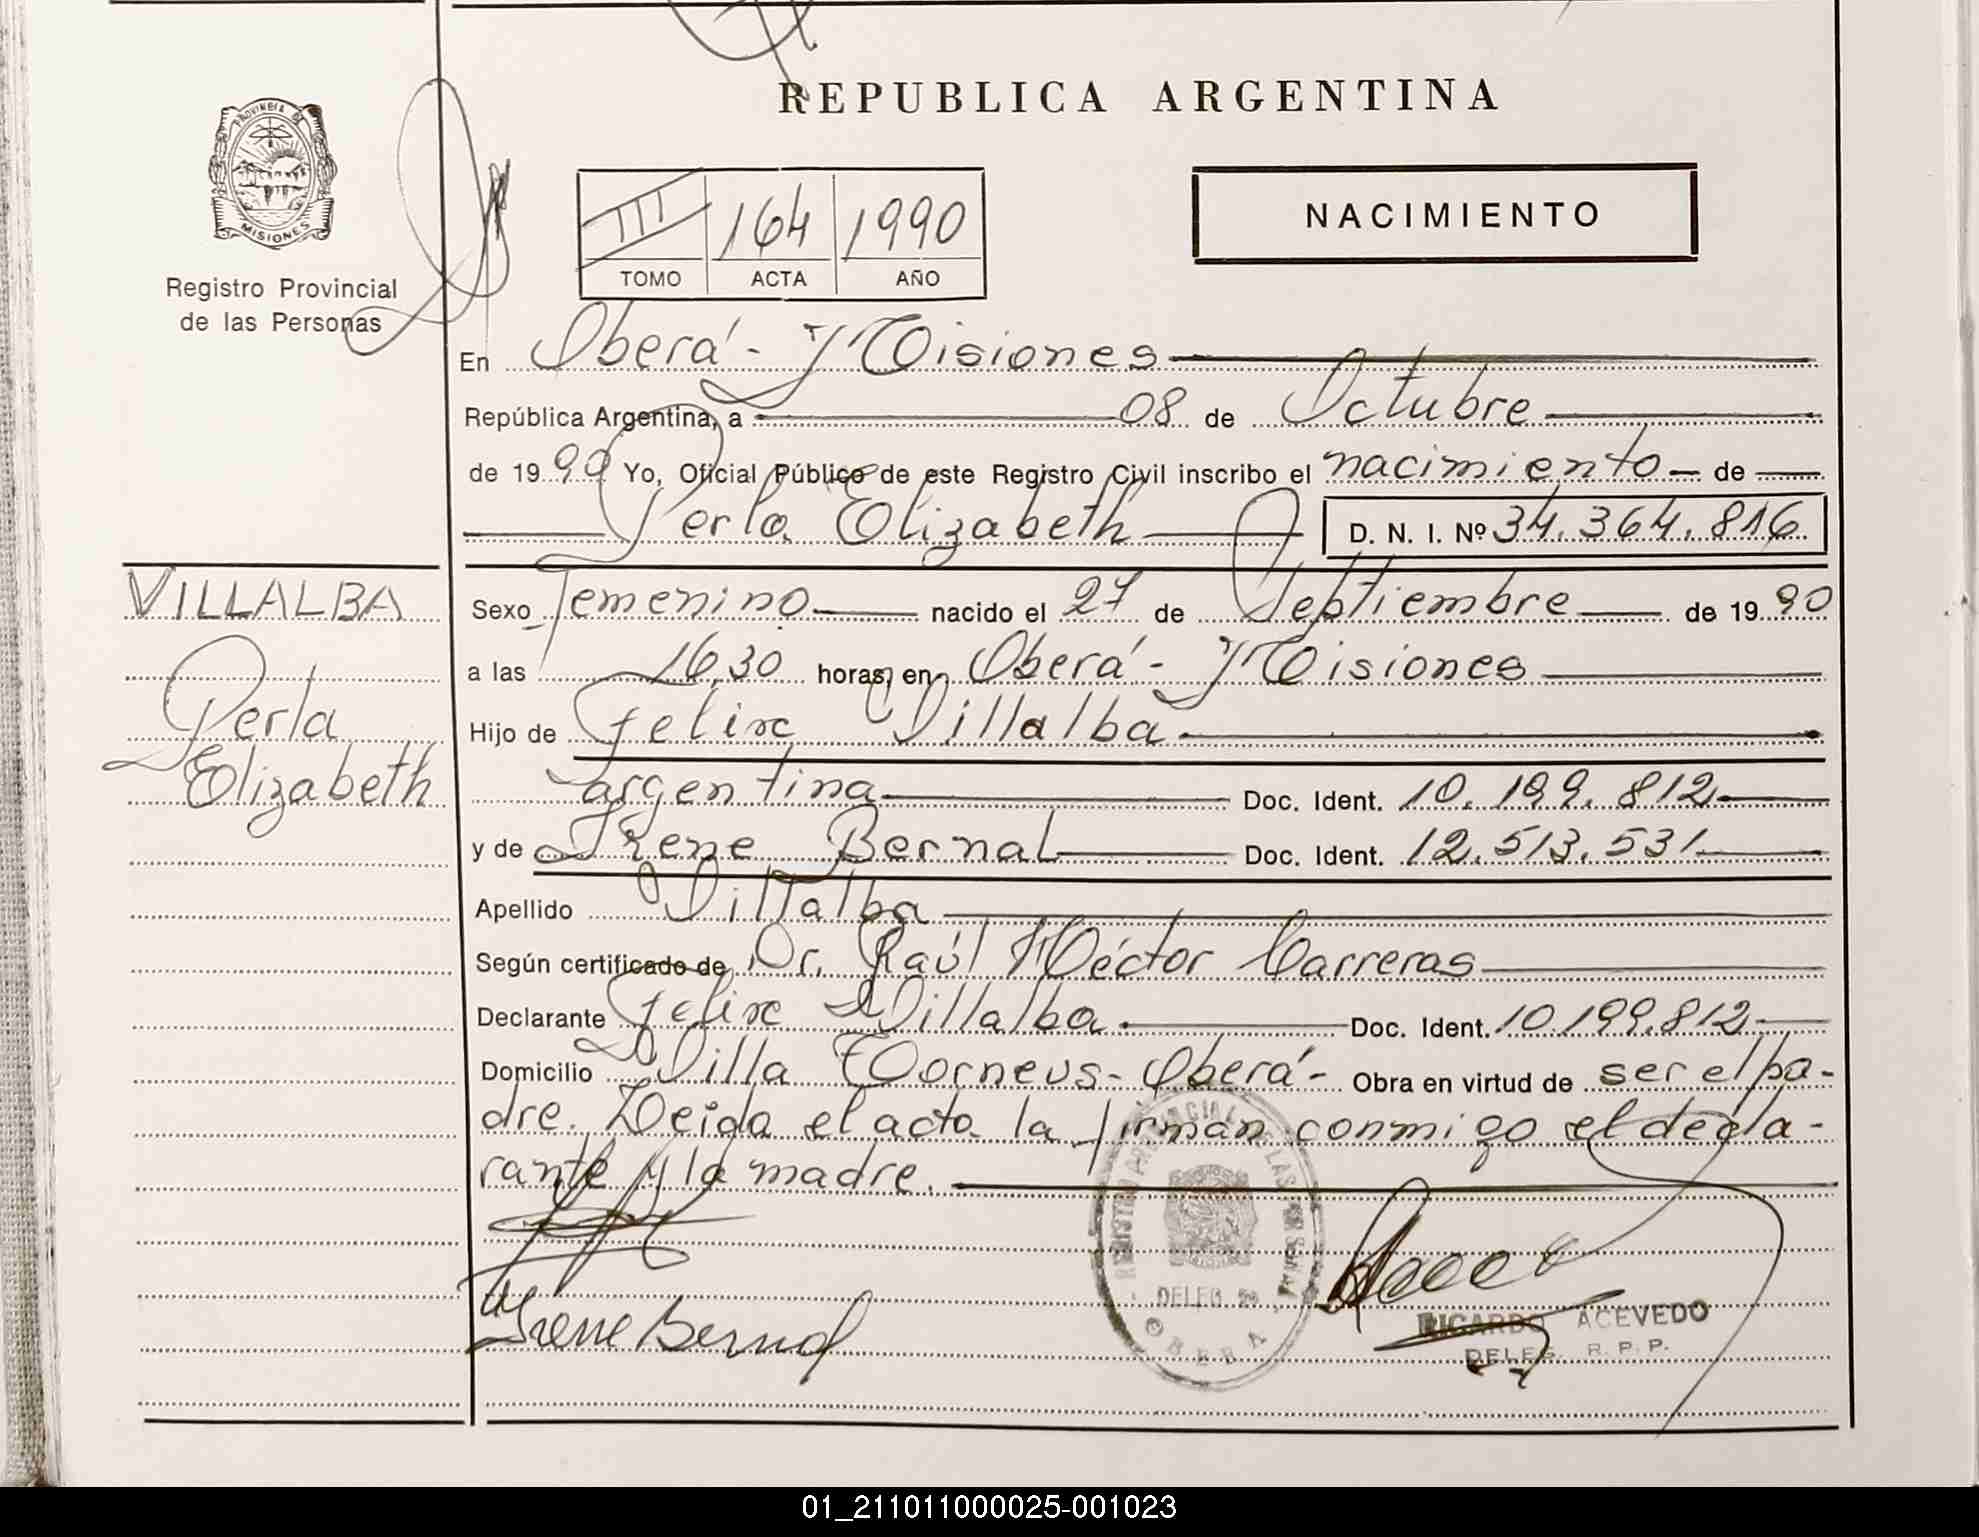 REPUBLICA ARGENTINA
PROVINCIA DE
MISIONES
Registro Provincial
de las Personas
III 164 1990
TOMO ACTA AÑO
NACIMIENTO
En Oberá - Misiones
República Argentina, a 08 de Octubre
de 1990 Yo, Oficial Público de este Registro Civil inscribo el nacimiento de
Perla Elizabeth D. N. I. Nº 34.364.816
VILLALBA
Perla
Elizabeth
Sexo Femenino nacido el 27 de Septiembre de 1990
a las 16,30 horas, en Oberá - Misiones
Hijo de Felix Villalba
argentina Doc. Ident. 10.199.812
y de Irene Bernal Doc. Ident. 12.513.531
Apellido Villalba
Según certificado de Dr. Raúl Héctor Carreras
Declarante Felix Villalba Doc. Ident. 10.199.812
Domicilio Villa - Oberá - Obra en virtud de ser el pa-
dre. Leida el acta la firman conmigo el decla-
rante y la madre.
Irene Bernal
REGISTRO PROVINCIAL DE LAS PERSONAS
DELEG.
OBERA
RICARDO ACEVEDO
DELEG. R. P. P.
01_211011000025-001023